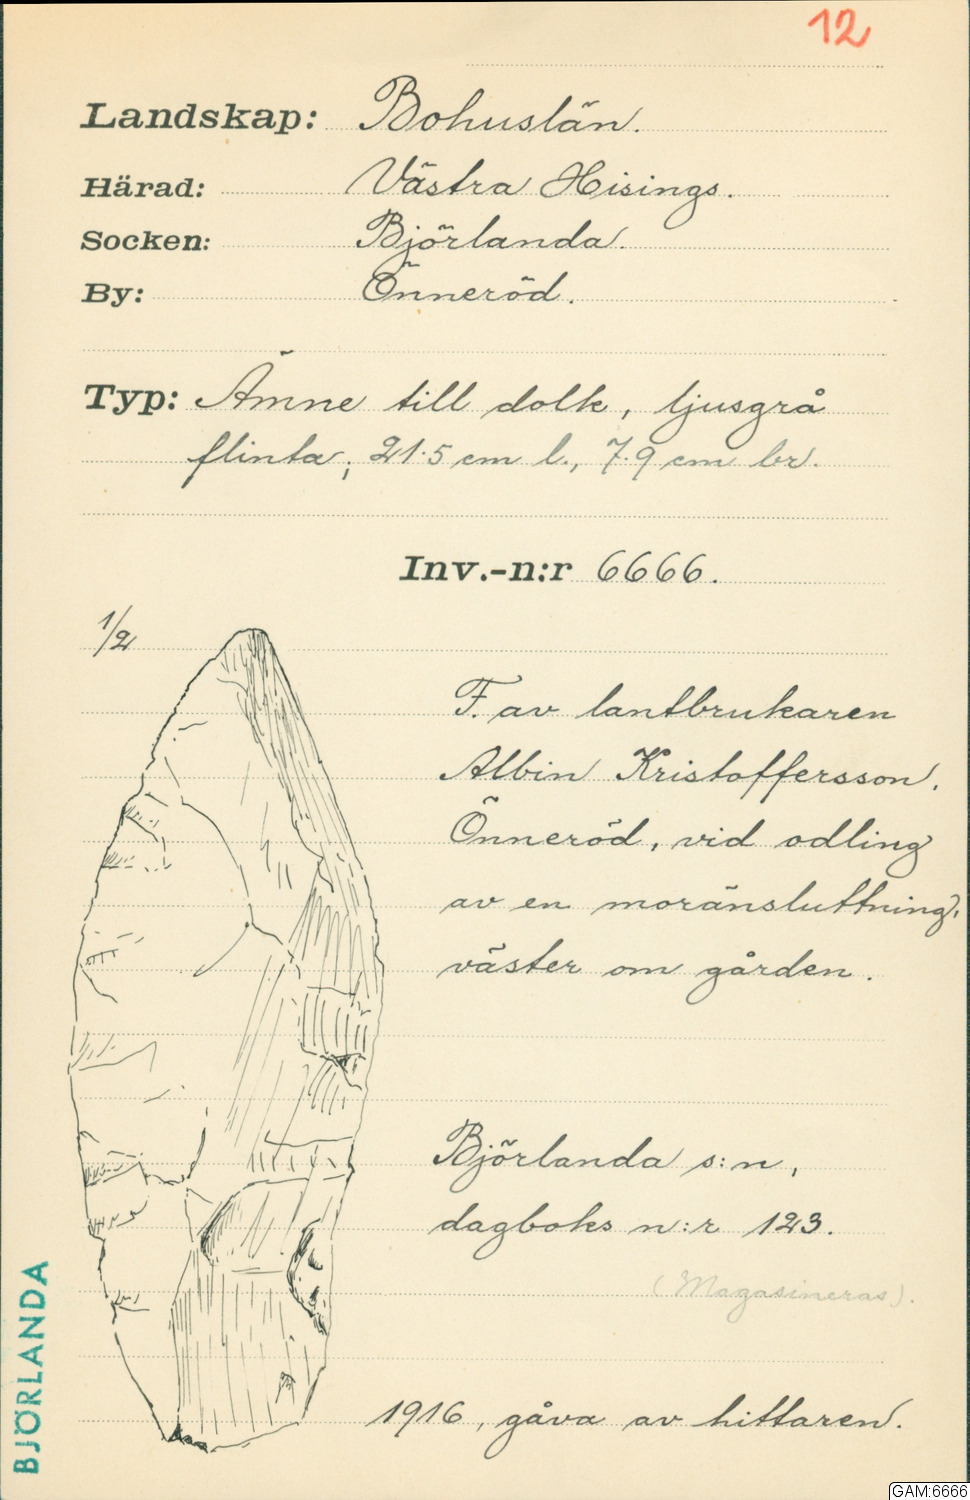 12
Landskap: Bohuslän.
Härad: Västra Hisings.
Socken: Björlanda.
By: Önneröd.
Typ: Ämne till dolk, ljusgrå
flinta; 21.5 cm l., 7.9 cm br.
Inv.-n:r 6666.
1/2
F. av lantbrukaren
Albin Kristoffersson,
Önneröd, vid odling
av en moränsluttning,
väster om gården.
Björlanda s:n,
dagboks n:r 123.
(Magasineras).
1916, gåva av hittaren.
BJÖRLANDA
GAM:6666